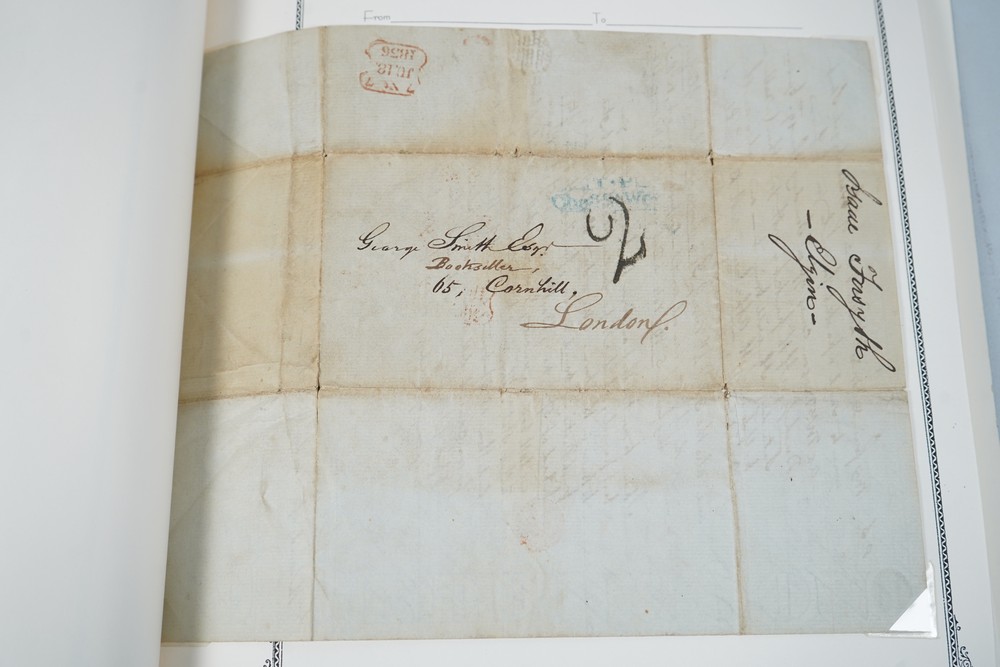 From To
7 N 7
JU 18
1836
2
George Smith Esqr
Bookseller,
65, Cornhill,
London.
Isaac Forsyth
- Elgin -